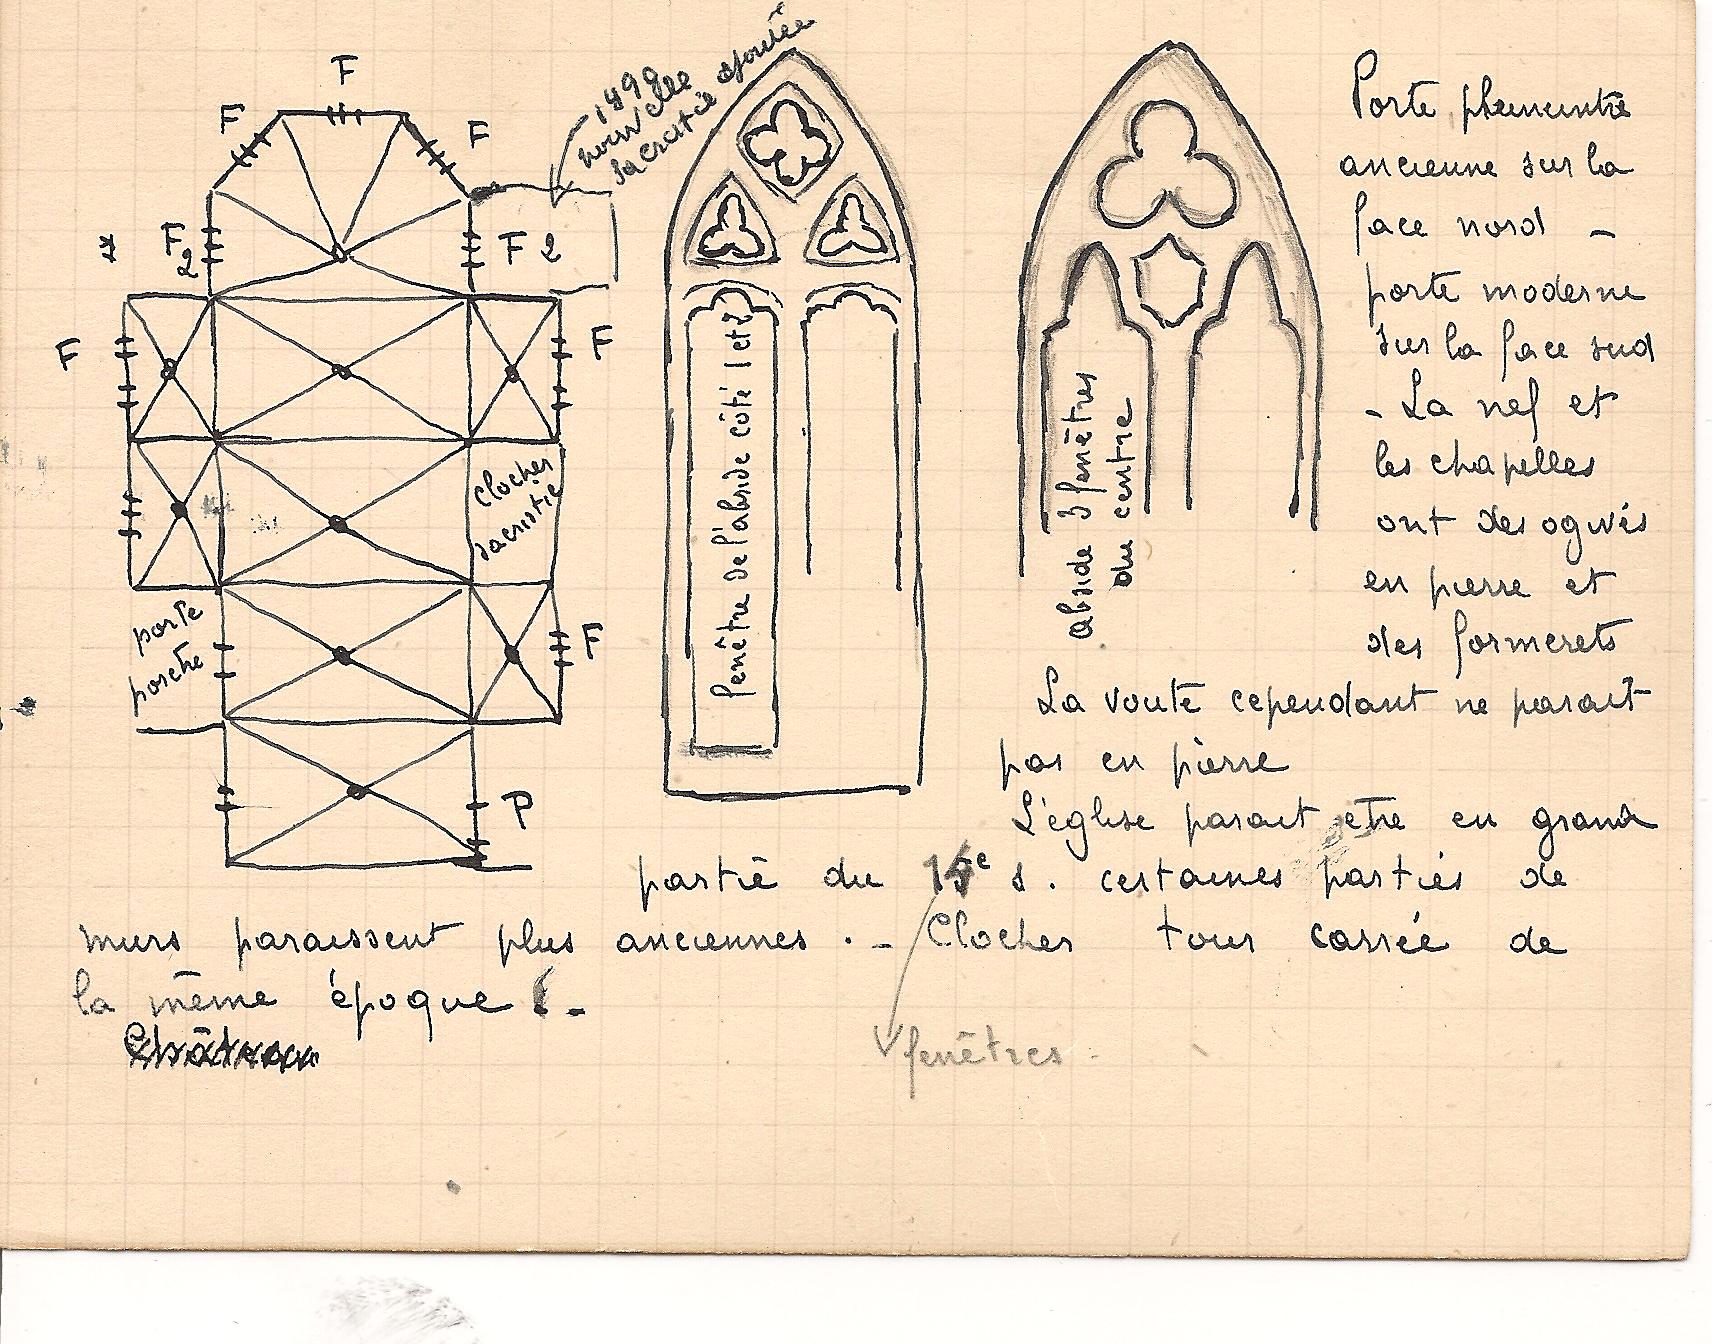 F
F
F
1499
nouvelle
sacristie ajoutée
F2
F 2
F
F
clocher
sacristie
porte
porche
F
P
fenêtre de l'abside côté 1 et 2
abside 3 fenêtres
du centre
Porte
ancienne sur la
face nord -
porte moderne
sur la face sud
- La nef et
les chapelles
ont des ogives
en pierre et
des formerets
La voute cependant ne parait
pas en pierre
L'église parait etre en grand
partie du s. certaines parties de
murs paraissent plus anciennes . - Clocher tour carrée de
la même époque -
fenêtres